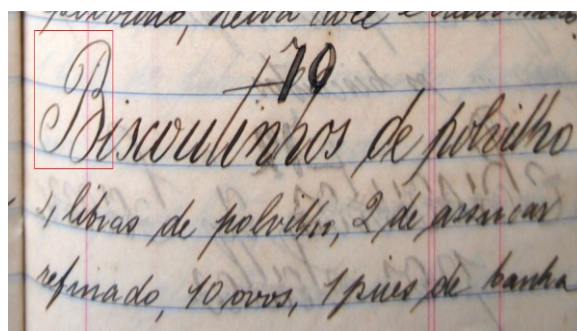 79
Biscoutinhos de polvilho
4 libras de polvilho, 2 de assucar
refinado, 10 ovos, 1 pires de banha